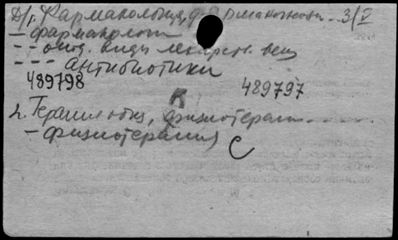 Д/, Фармакология, 3/V
– фармакологи
– – отд. виды лекарств. вещ
– – – антибиотики
489798 489797
2. Терапия общ, физиотерап
– физиотерапия
С